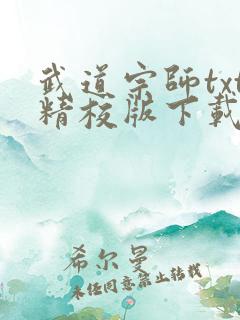 武道宗师txt
精校版下载
希尔曼
未经同意禁止转载